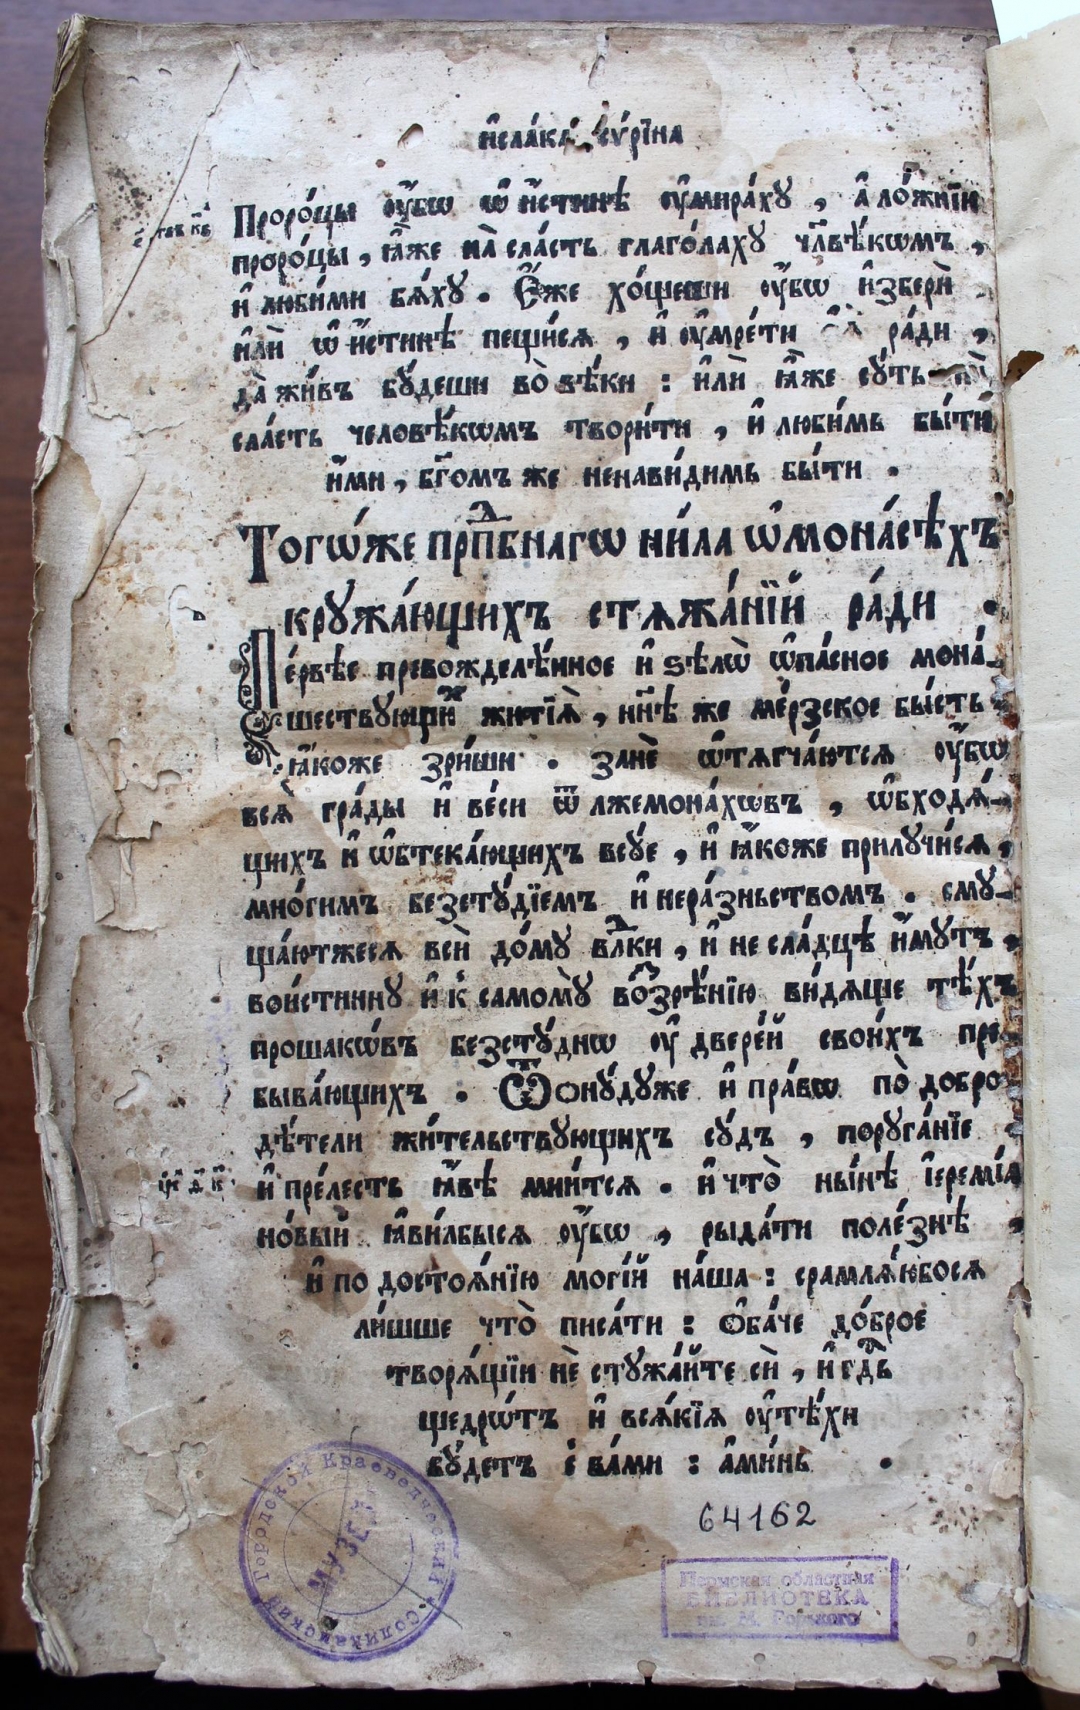 и҆саа́ка сѵ́рїна
Проро́цы ᲂу҆̀бѡ ѡ҆ и҆́стинѣ ᲂу҆мира́хꙋ , а҆ ло́жнїи
проро́цы , ꙗ҆̀же на̀ сла́сть глаго́лахꙋ чл҃вѣ́кѡмъ ,
и҆ люби́ми бѧ́хꙋ . Е҆́же хо́щеши ᲂу҆́бѡ и҆збери̇̀
и҆лѝ ѡ҆ и҆́стинѣ пещи́сѧ , и҆ ᲂу҆мре́ти ра́ди ,
да̀ жи́въ бꙋ́деши во̀ вѣ́ки : и҆лѝ ꙗ҆̀же сꙋ́ть на̀
сла́сть человѣ́кѡмъ твори́ти , и҆ люби́мь бы́ти
и҆́ми , бг҃омъ же ненави́димь бы́ти .
Тогѡ́же прпⷣбнагѡ ни́ла ѡ҆ мона́сѣхъ
крꙋжа́ющихъ стѧжа́нїй ра́ди .
Пе́рвѣе превожделѣ́нное и҆ ѕѣлѡ̀ ѡ҆па́сное мона́-
шествꙋющиⷯ житїѧ̀ , нн҃ѣ же ме́рзское бы́сть
ꙗ҆́коже зри́ши . занѐ ѡ҆тѧгча́ютсѧ ᲂу҆́бѡ
всѧ̀ гра́ды и҆ ве́си ѿ лжемона́хѡвъ , ѡ҆бходѧ́-
щихъ и҆ ѡ҆бтека́ющихъ всꙋ́е , и҆ ꙗ҆́коже прилꙋчи́сѧ ,
мно́гимъ безстꙋ́дїемъ и҆ нера́зньствомъ . смꙋ-
ща́ютжесѧ всѝ до́мꙋ влⷣки , и҆ не сла́дцѣ и҆́мꙋтъ ,
вои́стиннꙋ и҆ к̾ самомꙋ̀ воⷥзрѣ́нїю ви́дѧще тѣ́хъ
прошакѡ́въ безстꙋ́днѡ ᲂу҆ двере́й свои́хъ пре-
быва́ющихъ . Ѿонꙋ́дꙋже и҆ пра́вѡ по̀ добро-
дѣ́тели жи́тельствꙋющихъ сꙋ́дъ , порꙋга́нїе
и҆ пре́лесть ꙗ҆́вѣ мни́тсѧ . и҆ что̀ ны́нѣ і҆еремі́а
но́вый ꙗ҆ви́лбысѧ ᲂу҆́бѡ , рыда́ти поле́знѣ ,
и҆ по достоѧ́нїю могі́й на́ша : срамлѧ́юбосѧ
ли́шше что̀ писа́ти : Ѻ҆ба́че до́брое
творѧ́щїи нѐ стꙋжа́йте сѝ , и҆ гдⷭ҇ь
щедрѡ́тъ и҆ всѧ́кїѧ ᲂу҆тѣ́хи
бꙋ́детъ с̾ ва́ми : а҆ми́нь .
64162
Соликамский Городской Краеведческий
МУЗЕЙ
Пермская областная
БИБЛИОТЕКА
им. М. Горького